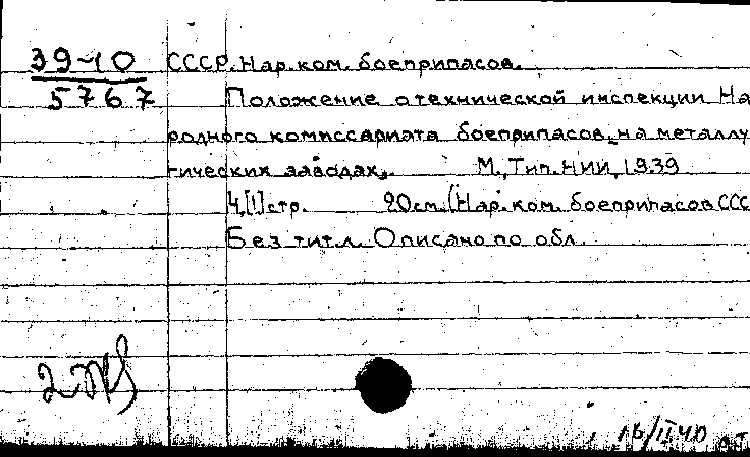 39-10
5767
СССР. Нар. ком. боеприпасов.
Положение о технической инспекции На
родного комиссариата боеприпасов на металлу
гических заводах. М., Тип. НИИ, 1939
4,[1] стр. 20 см. (Нар. ком. боеприпасов ССС
Без тит. л. Описано по обл.
16/II 40